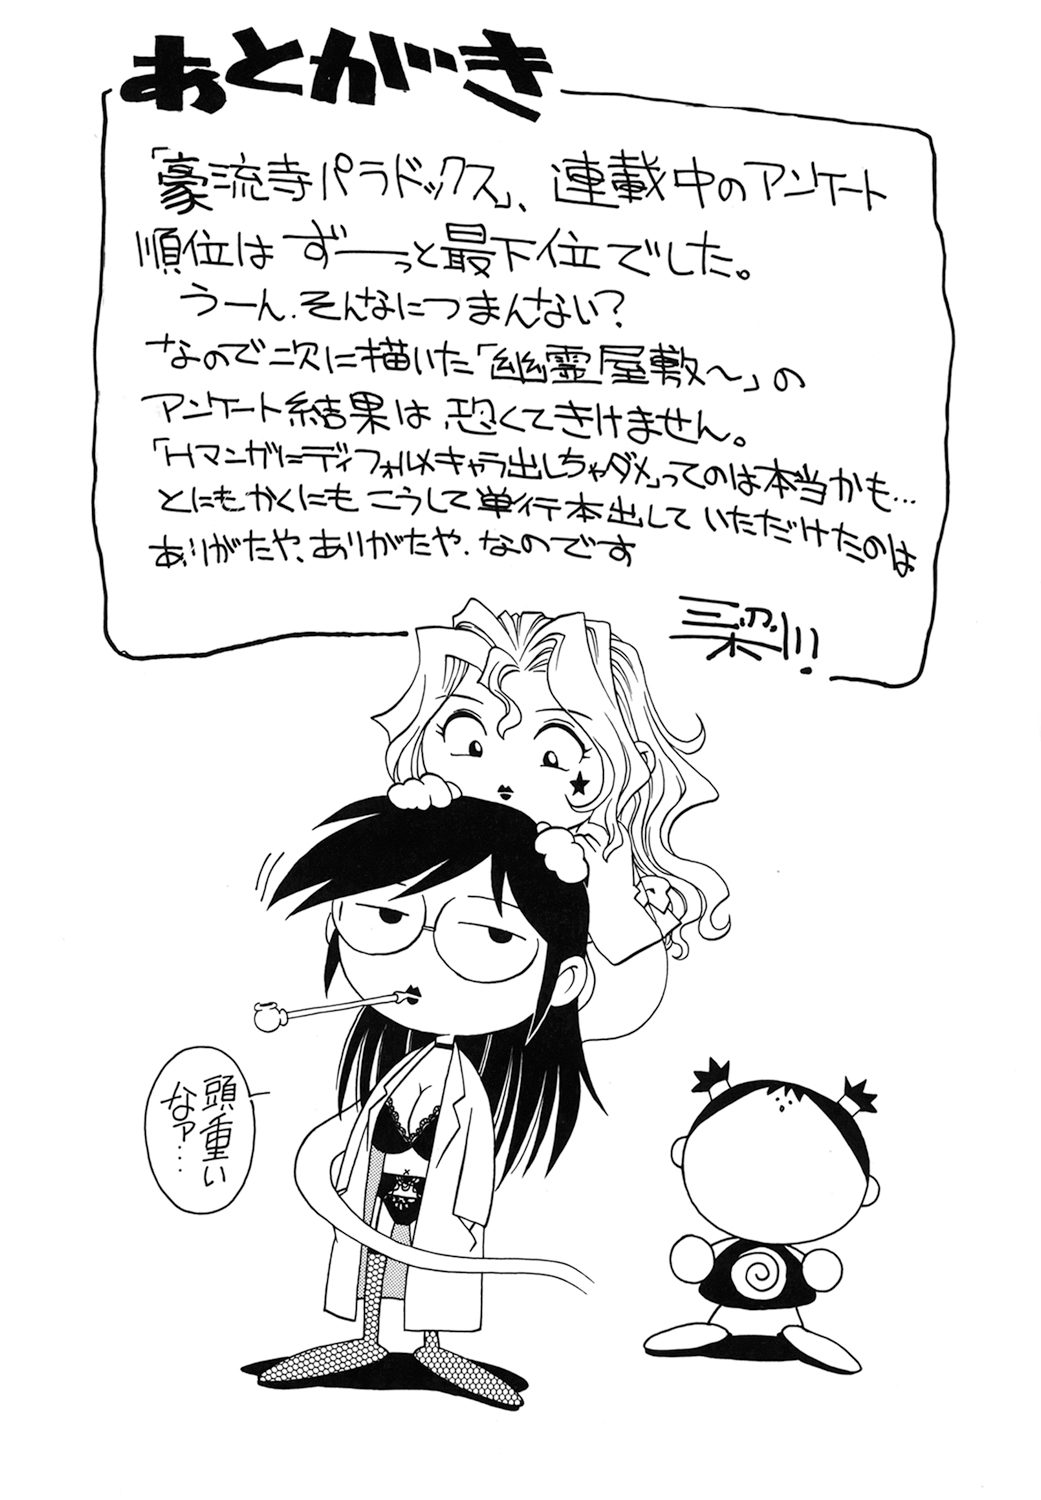 あとがき
「豪流寺パラドックス」、連載中のアンケート
順位は ずーーっと最下位でした。
うーん、そんなにつまんない?
なので二次に描いた「幽霊屋敷〜」の
アンケート結果は恐くてきけません。
「Hマンガにディフォルメキャラ出しちゃダメ」ってのは本当かも…
とにもかくにも こうして単行本出して いただけたのは
ありがたや、ありがたや、なのです
頭重い
なァ…